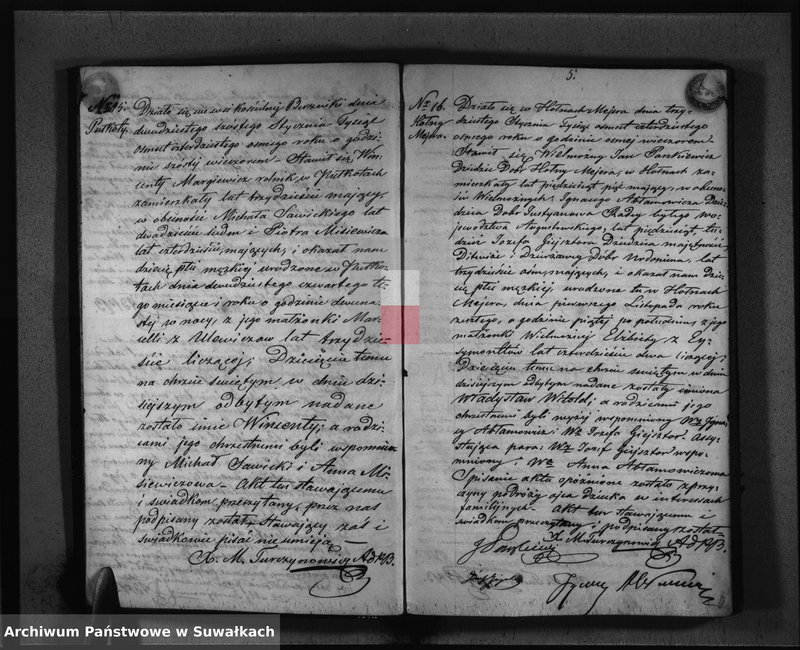 Nr 15.
Putkoty.
Działo się we wsi kościelnej Berżniki dnia
dwudziestego szóstego Stycznia Tysiąc
ośmset czterdziestego ósmego roku o godzi-
nie szóstej wieczorem – Stawił się Win-
centy Margiewicz rolnik w Putkotach
zamieszkały lat trzydzieści mający,
w obecności Michała Sawickiego lat
dwadzieścia siedm i Piotra Misiewicza
lat czterdzieści, mających, i okazał nam
dziecię płci męzkiej urodzone w Putko-
tach dnia dwudziestego czwartego te-
go miesiąca i roku o godzinie dwuna-
stej w nocy, z jego małżonki Mar-
celli z Ulewiczów lat trzydzie-
ście liczącej; Dziecięciu temu
na chrzcie świętym w dniu dzi-
siejszym odbytym nadane
zostało imie Wincenty; a rodzi-
cami jego chrzestnemi byli wspomnio-
ny Michał Sawicki i Anna Mi-
siewiczowa – Akt ten stawającemu
i świadkom przeczytany, przez nas
podpisany został, Stawający zaś i
świadkowie pisać nie umieją –
X. M. Turczynowicz A d P B.
5.
Nr 16.
Hołny
Mejera.
Działo się w Hołnach Mejera dnia trzy-
dziestego Stycznia Tysiąc ośmset czterdziestego
ósmego roku o godzinie ósmej wieczorem
Stawił się Wielmożny Jan Pankiewicz
Dziedzic Dóbr Hołny Mejera, w Hołnach za-
mieszkały lat pięćdziesiąt pięć mający, w obecno-
ści Wielmożnych: Ignacego Abłamowicza Dzie-
dzica Dóbr Justyanowa Radcy byłego wo-
jewództwa Augustowskiego, lat pięćdziesiąt, tu-
dzież Józefa Giejsztora Dziedzica majętności
i Dzierżawcy Dóbr lat
trzydzieści ośm, mających, i okazał nam dzie-
cię płci męzkiej urodzone tu w Hołnach
Mejera, dnia pierwszego Listopada roku
zeszłego, o godzinie piątej po południu, z jego
małżonki Wielmożnej Elżbiety z Ey-
symonttów lat czterdzieści dwa liczącej,
Dziecięciu temu na chrzcie świętym w dniu
dzisiejszym odbytym nadane zostały imiona
Władysław Witold; a rodzicami jego
chrzestnemi byli wyżej wspomniony Wny Igna-
cy Abłamowicz i Wna Józefa Giejsztor. Assy-
stująca para: Wny Józef Giejsztor wspo-
mniony i Wna Anna Abłamowiczowa
Spisanie aktu opóźnione zostało z przy-
czyny podróży ojca dziecka w interesach
familijnych – Akt ten Stawającemu i
świadkom przeczytany i podpisany został –
X. M. Turczynowicz A d P B.
Archiwum Państwowe w Suwałkach